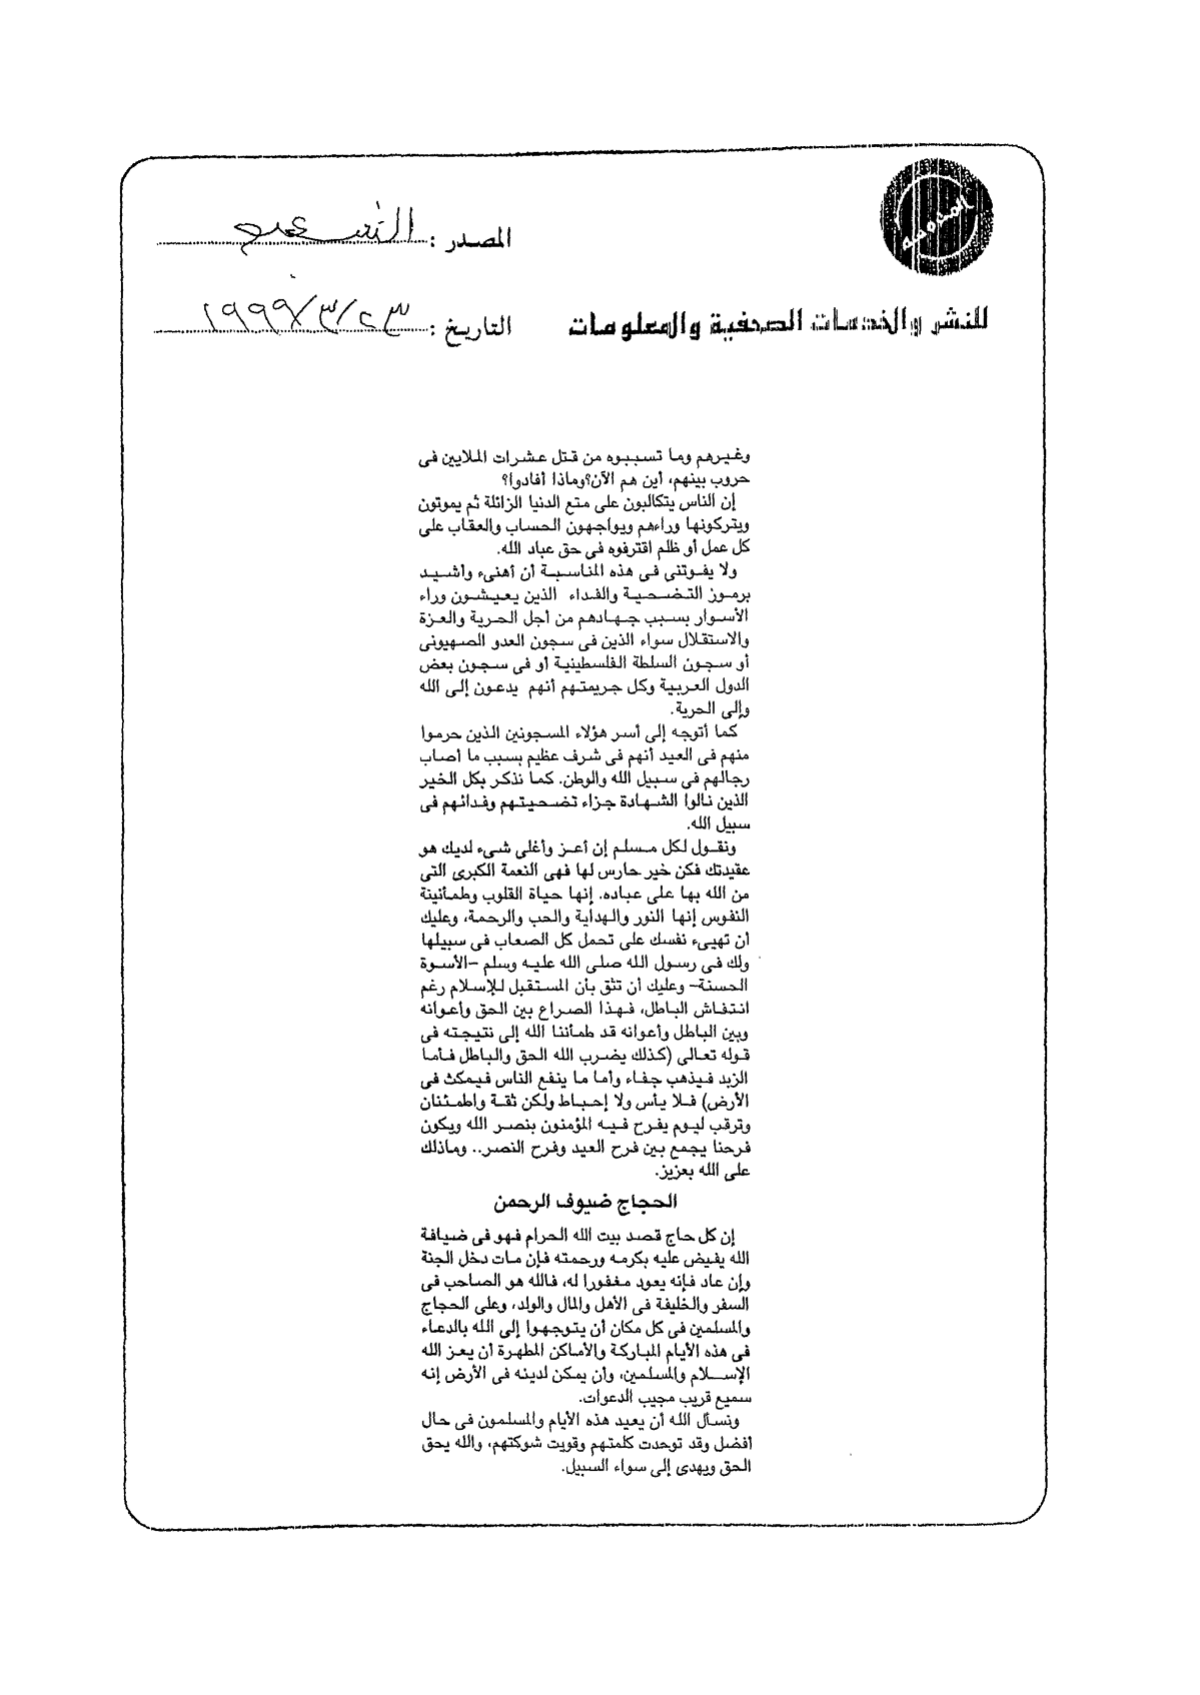 المصدر : الشعب
للنشر والخدمات الصحفية والمعلومات
التاريخ : ٢٣/٣/١٩٩٩
وغيرهم وما تسببوه من قتل عشرات الملايين فى
حروب بينهم، أين هم الآن؟وماذا أفادوا؟
إن الناس يتكالبون على متع الدنيا الزائلة ثم يموتون
ويتركونها وراءهم ويواجهون الحساب والعقاب على
كل عمل أو ظلم اقترفوه فى حق عباد الله.
ولا يفوتنى فى هذه المناسبة أن أهنىء وأشيد
برموز التضحية والفداء الذين يعيشون وراء
الأسوار بسبب جهادهم من أجل الحرية والعزة
والاستقلال سواء الذين فى سجون العدو الصهيونى
أو سجون السلطة الفلسطينية أو فى سجون بعض
الدول العربية وكل جريمتهم أنهم يدعون إلى الله
وإلى الحرية.
كما أتوجه إلى أسر هؤلاء المسجونين الذين حرموا
منهم فى العيد أنهم فى شرف عظيم بسبب ما أصاب
رجالهم فى سبيل الله والوطن. كما نذكر بكل الخير
الذين نالوا الشهادة جزاء تضحيتهم وفدائهم فى
سبيل الله.
ونقول لكل مسلم إن أعز وأغلى شىء لديك هو
عقيدتك فكن خير حارس لها فهى النعمة الكبرى التى
من الله بها على عباده. إنها حياة القلوب وطمأنينة
النفوس إنها النور والهداية والحب والرحمة، وعليك
أن تهيىء نفسك على تحمل كل الصعاب فى سبيلها
ولك فى رسول الله صلى الله عليه وسلم –الأسوة
الحسنة– وعليك أن تثق بأن المستقبل للإسلام رغم
انتفاش الباطل، فهذا الصراع بين الحق وأعوانه
وبين الباطل وأعوانه قد طمأننا الله إلى نتيجته فى
قوله تعالى (كذلك يضرب الله الحق والباطل فأما
الزبد فيذهب جفاء وأما ما ينفع الناس فيمكث فى
الأرض) فلا يأس ولا إحباط ولكن ثقة واطمئنان
وترقب ليوم يفرح فيه المؤمنون بنصر الله ويكون
فرحنا يجمع بين فرح العيد وفرح النصر.. وماذلك
على الله بعزيز.
الحجاج ضيوف الرحمن
إن كل حاج قصد بيت الله الحرام فهو فى ضيافة
الله يفيض عليه بكرمه ورحمته فإن مات دخل الجنة
وإن عاد فإنه يعود مغفورا له، فالله هو الصاحب فى
السفر والخليفة فى الأهل والمال والولد، وعلى الحجاج
والمسلمين فى كل مكان أن يتوجهوا إلى الله بالدعاء
فى هذه الأيام المباركة والأماكن المطهرة أن يعز الله
الإسلام والمسلمين، وأن يمكن لدينه فى الأرض إنه
سميع قريب مجيب الدعوات.
ونسأل الله أن يعيد هذه الأيام والمسلمون فى حال
أفضل وقد توحدت كلمتهم وقويت شوكتهم، والله يحق
الحق ويهدى إلى سواء السبيل.